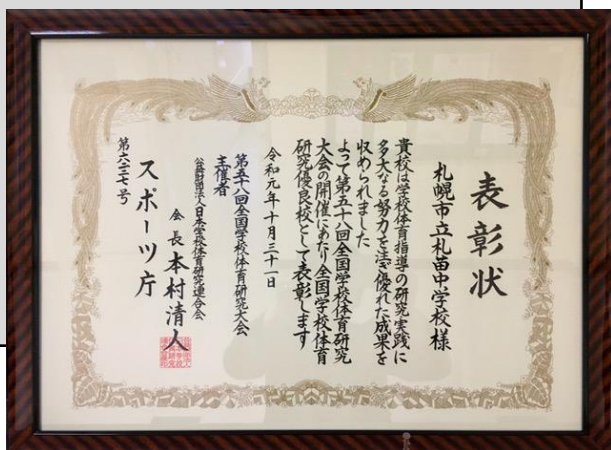 表彰状
札幌市立札苗中学校様
貴校は学校体育指導の研究実践に
多大なる努力を注ぎ優れた成果を
収められました
よって第五十八回全国学校体育研究
大会の開催にあたり全国学校体育
研究優良校として表彰します
令和元年十月三十一日
第五十八回全国学校体育研究大会
主催者
公益財団法人日本学校体育研究連合会
会長本村清人
スポーツ庁
第六二七号